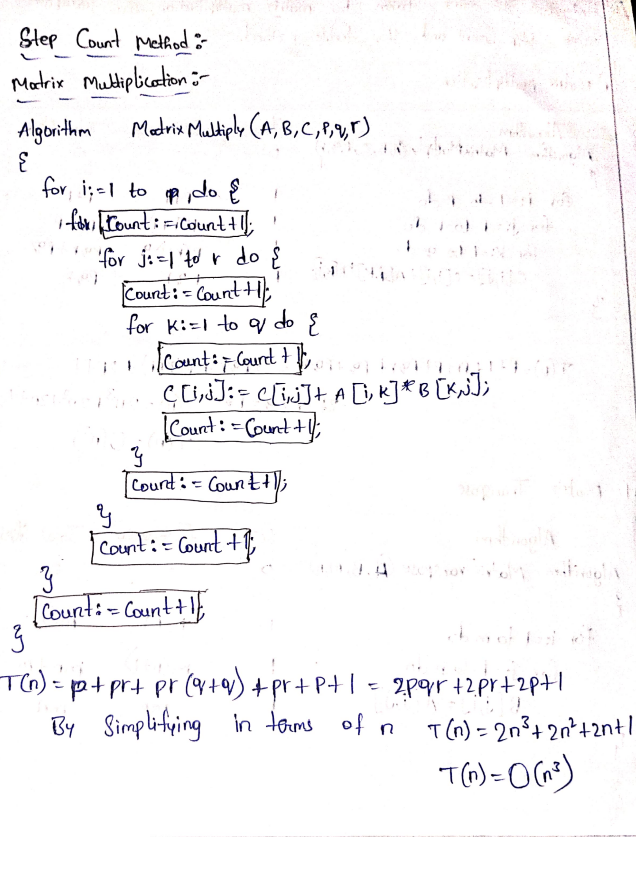 Step Count Method :-
Matrix Multiplication :-
Algorithm MatrixMultiply (A, B, C, P, q, r)
{
for i:=1 to p do {
Count := Count + 1;
for j:=1 to r do {
Count := Count + 1;
for k:=1 to q do {
Count := Count + 1;
C[i,j]:= C[i,j]+ A [i, k] * B [k,j];
Count := Count + 1;
}
Count := Count + 1;
}
Count := Count + 1;
}
Count := Count + 1;
}
T(n) = p + pr + pr (q+q) + pr + P + 1 = 2pqr + 2pr + 2p + 1
By Simplifying in terms of n T(n) = 2n³ + 2n² + 2n + 1
T(n) = O(n³)